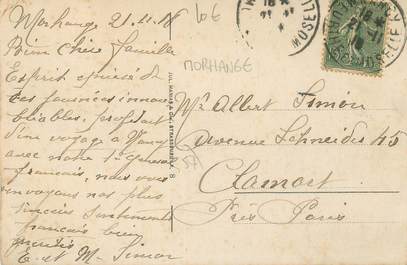 Morhange 21.11.18
Bien chère famille
Esprit épuisé de
ces journées inou
bliables, profitant
d'un voyage à Nancy
avec notre 1er général
français, nous vous
envoyons nos plus
sincères sentiments
français bien
E. et M. Simon
10€
MORHANGE
MOSELLE
Mr Albert Simon
Avenue Schneider 45
Clamart
Près Paris